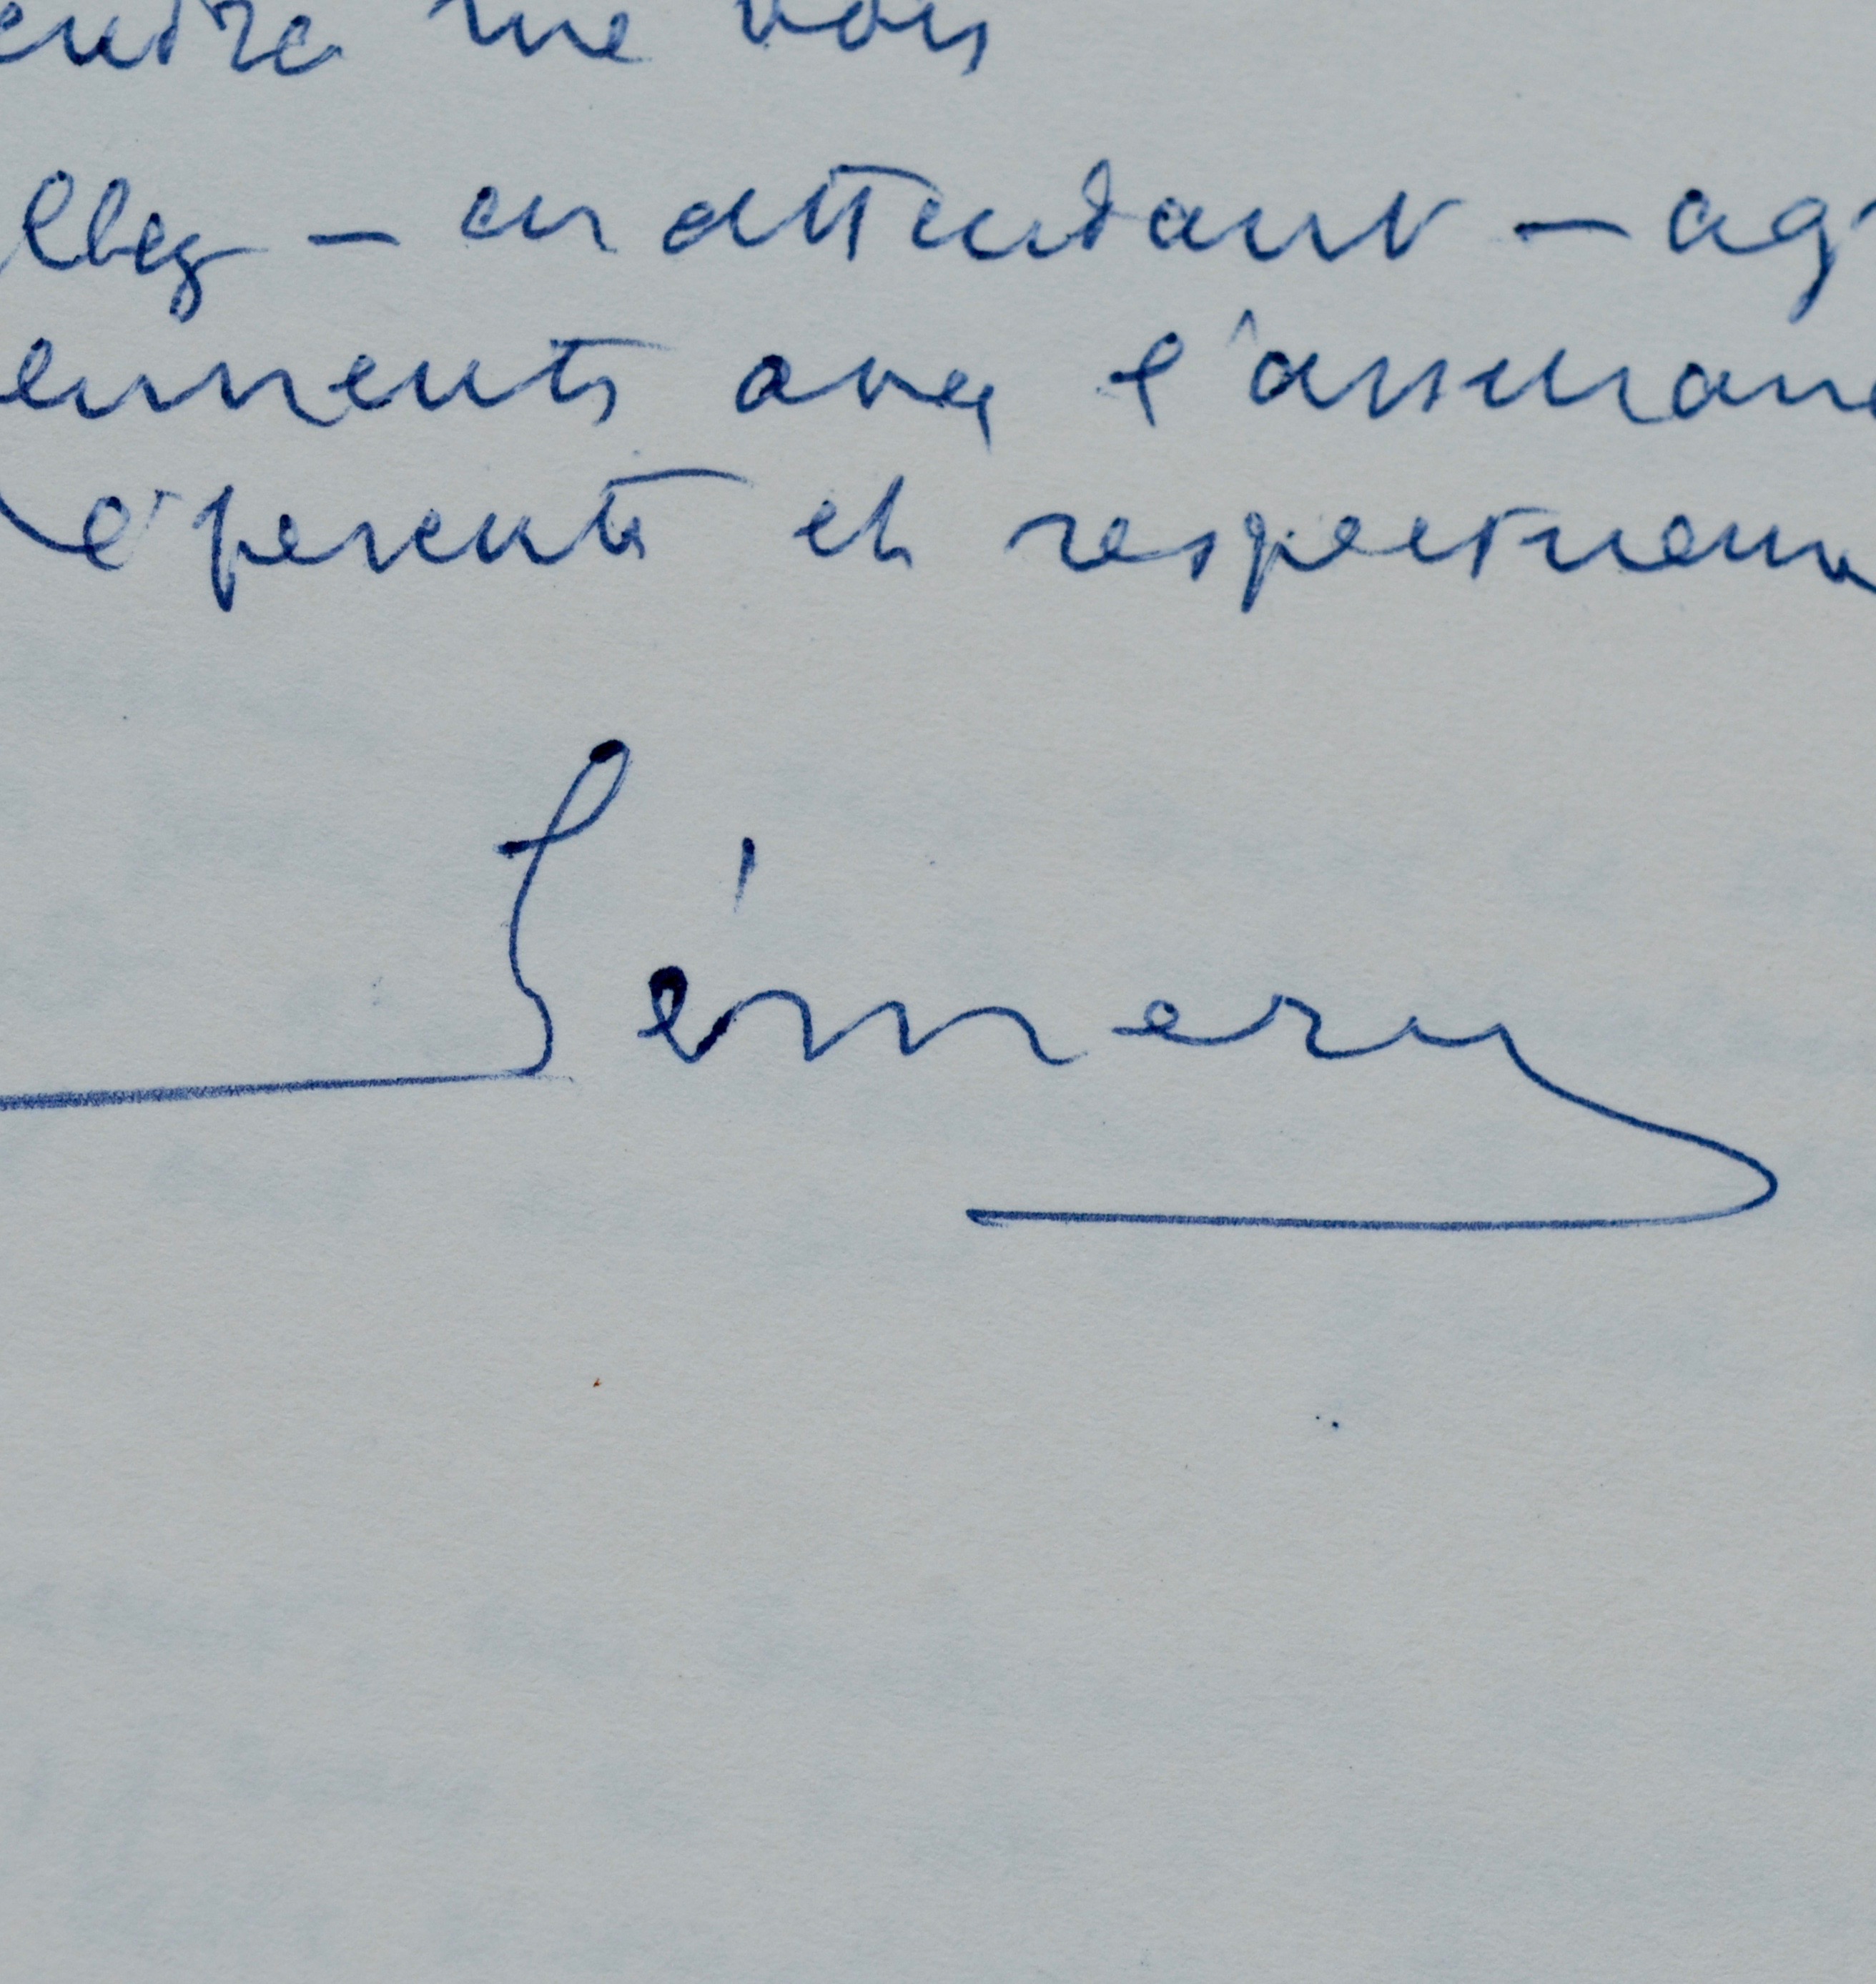 endre me vois
llez - en attendant - ag
ements avec l'assuranc
éférents et respectueux
Sémery